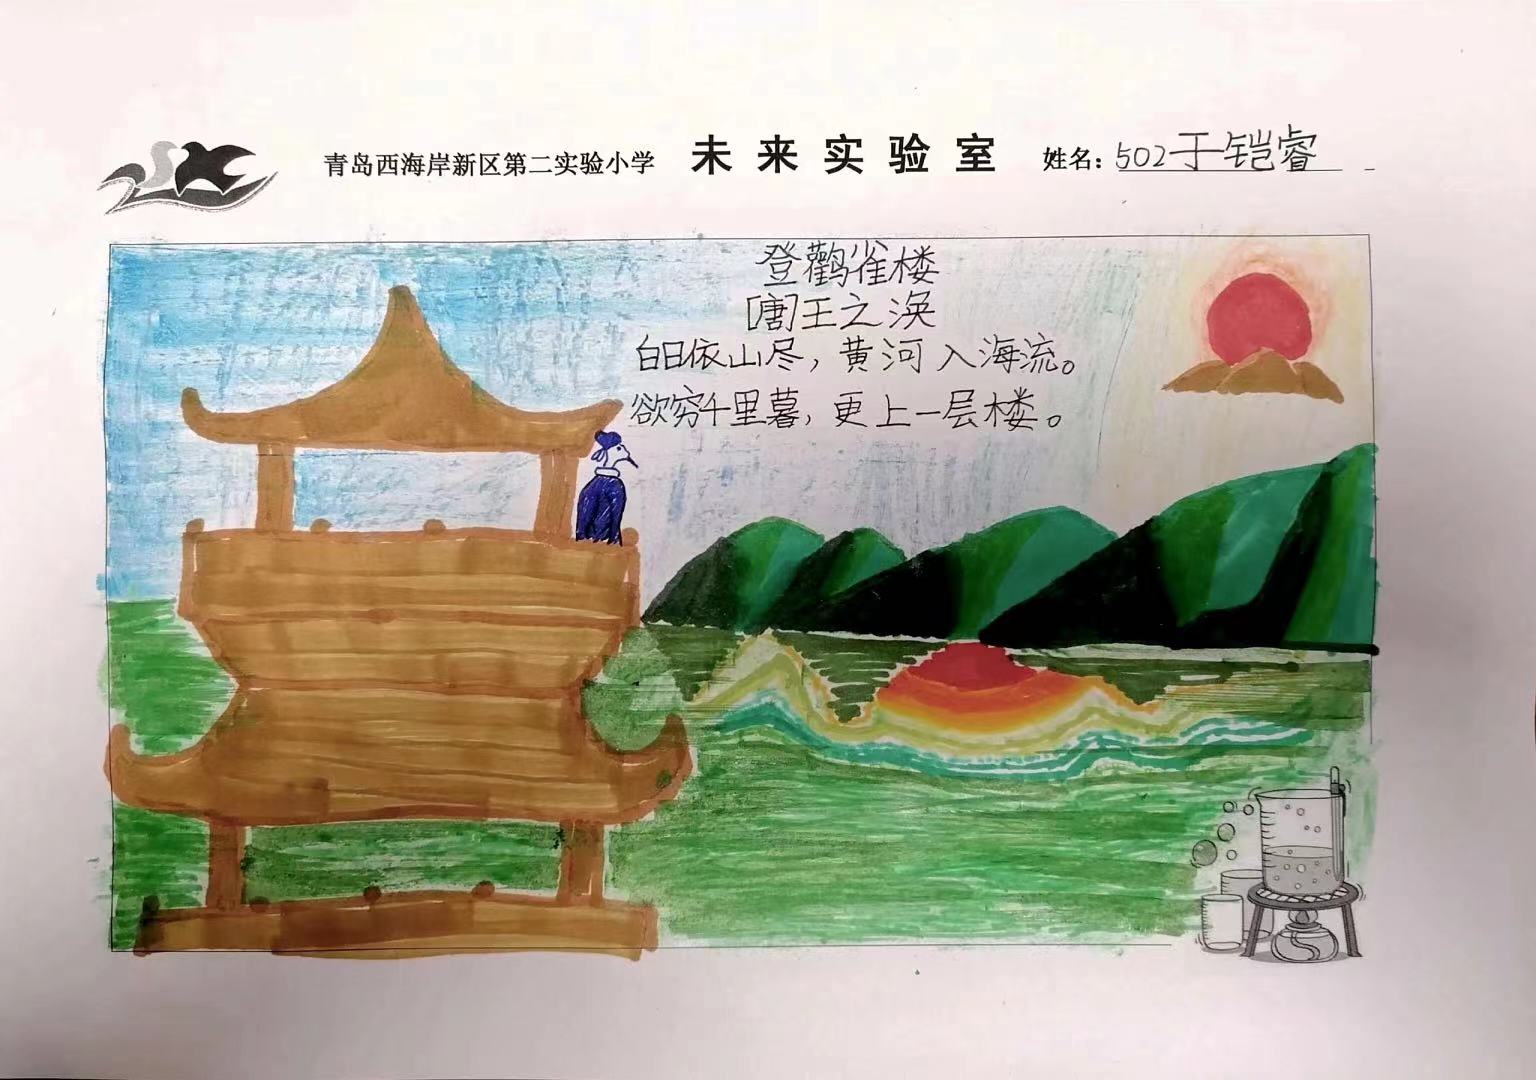 青岛西海岸新区第二实验小学 未来实验室 姓名:502于铠睿
登鹳雀楼
[唐]王之涣
白日依山尽，黄河入海流。
欲穷千里暮，更上一层楼。